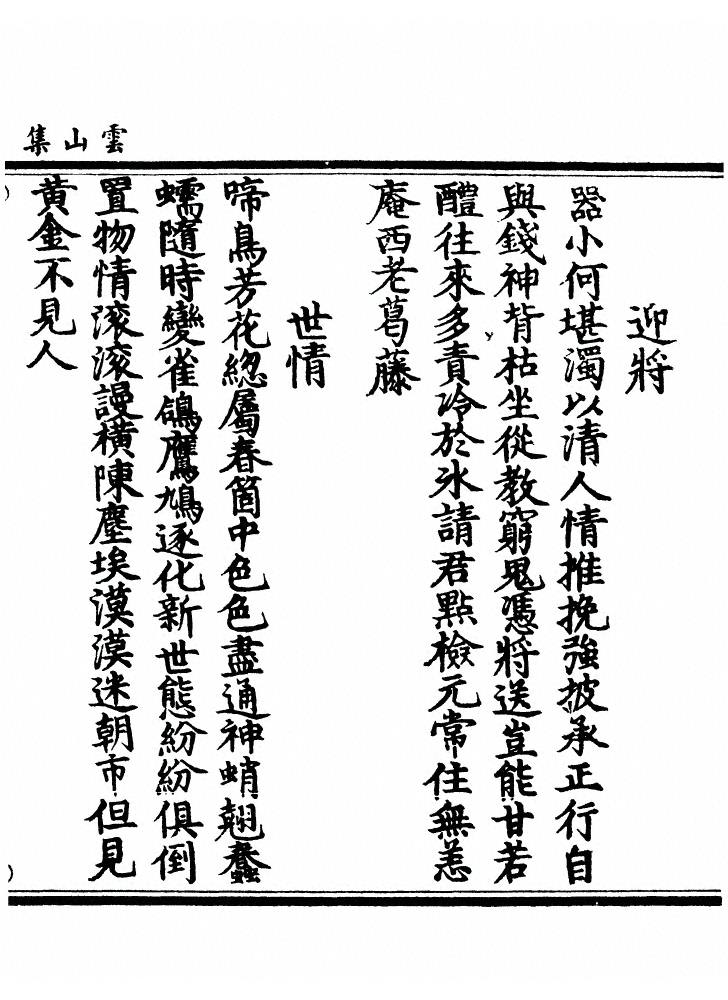 雲山集
迎將
器小何堪濁以清人情推挽強披承正行自
與錢神背枯坐從教窮鬼憑將送豈能甘若
醴往來多責冷於氷請君點檢元常住無恙
庵西老葛藤
世情
啼鳥芳花緫屬春箇中色色盡通神蛸翹蠢
蠕隨時變雀鴿鷹鳩逐化新世態紛紛俱倒
置物情滾滾謾橫陳塵埃漠漠迷朝市但見
黄金不見人